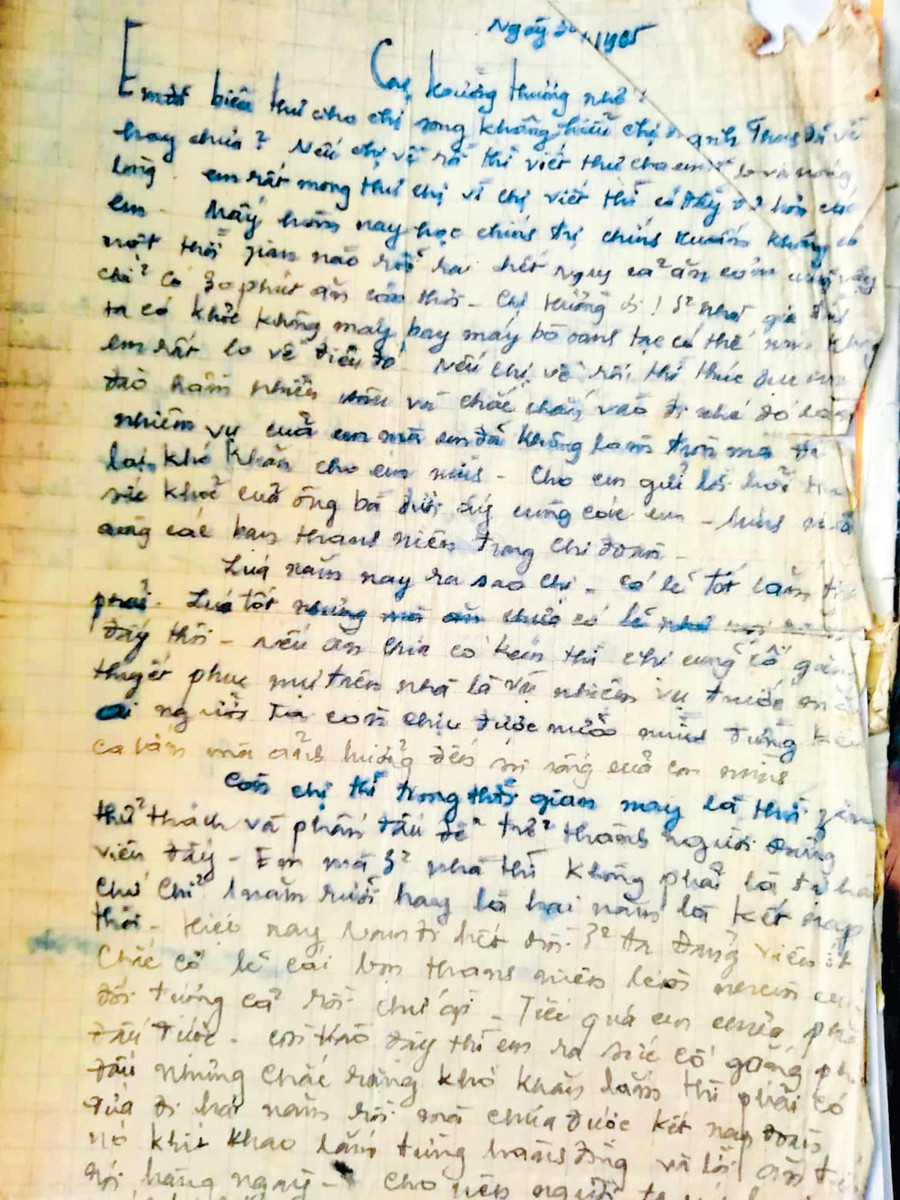 Ngày 1965
Chị Hường thương nhớ!
Em đã biên thư cho chị song không hiểu chị và anh đã về
hay chưa? Nếu chị về rồi thì viết thư cho em lo và nóng
lòng. em rất mong thư chị vì chị viết thì có đầy đủ hơn
em. Mấy hôm nay học chính trị chính huấn không có
một thời gian nào rỗi rãi hết ngay cả ăn cơm
chỉ có 30 phút ăn cơm thôi - Chị Hường ơi! ở nhà gia đình
ta có khỏe không máy bay máy bò oanh tạc có thế nào
em rất lo về điều đó. Nếu chị về rồi thì thúc dục
đào hầm nhiều vào và chắc chắn vào đi nhé đó là
nhiệm vụ của em mà em đã không làm tròn mà để
lại khó khăn cho em mình - Cho em gửi lời hỏi thăm
sức khỏe của ông bà dưới ấy cùng các em -
cùng các bạn thanh niên trong chi đoàn -
Lúa năm nay ra sao chị - có lẽ tốt lắm thì
phải. Lúa tốt nhưng mà ăn chưa có lẽ
đấy thôi - nếu ăn chia có kém thì chị cũng cố gắng
thuyết phục mụ trên nhà là vụ nhiệm vụ trước
ai người ta còn chịu được nước mình đừng kêu
ca lắm mà ảnh hưởng đến đời sống của con mình
Còn chị thì trong thời gian này là thời gian
thử thách và phấn đấu để trở thành người đảng
viên đấy - Em mà ở nhà thì không phải là
chứ chỉ 1 năm rưỡi hay là hai năm là kết nạp
thôi - Hiện nay Nam đi hết đời ở ta đảng viên ít
Chắc có lẽ cái bọn thanh niên
đối tượng cả rồi chứ gì - Tiếc quá em chưa
đấu được - còn vào đây thì em ra sức cố gắng
đấu nhưng chắc rằng khó khăn lắm thì phải có
đứa đi hai năm rồi mà chưa được kết nạp đoàn
nó khắt khao lắm từng hành động và lời ăn
nói hàng ngày - Cho nên người ta